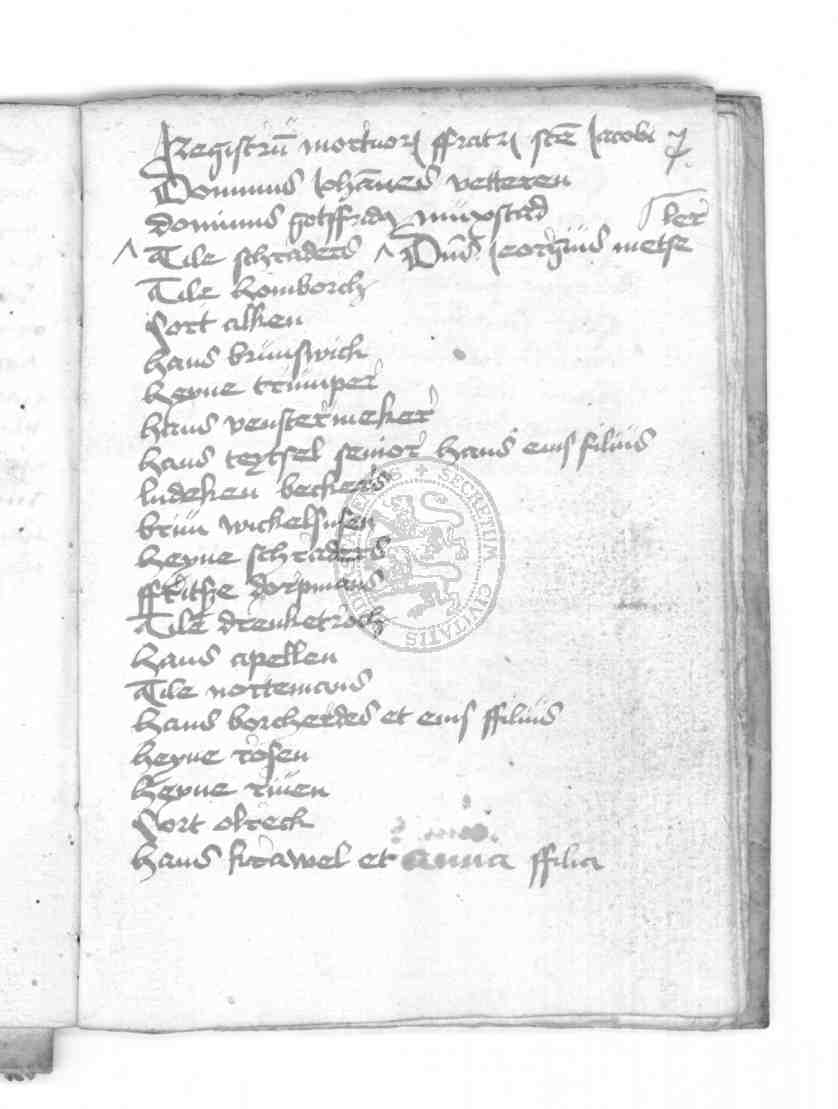 Registrū mortuoꝝ ffratꝝ scte Jacobi
Dominus Johānes vetteren
dominus gotffridꝯ muxstad
ler
^ Tile schraders ^ Dn̄s Jeorgius metse
Tile homborch
Cort alken
hans brunswick
heyne trumper
hans venstermeker
hans teytsel senior hans eius filius
ludeken beckers
brun wickelsusen
heyne schraders
ffritsze dorpmans
Tile drenketroch
hans apellen
Tile nottemans
hans borcherdes et eius ffilius
heyne rosen
heyne ruen
Cort olreck
hans krawel et anna ffilia
SECRETUM CIVITATIS